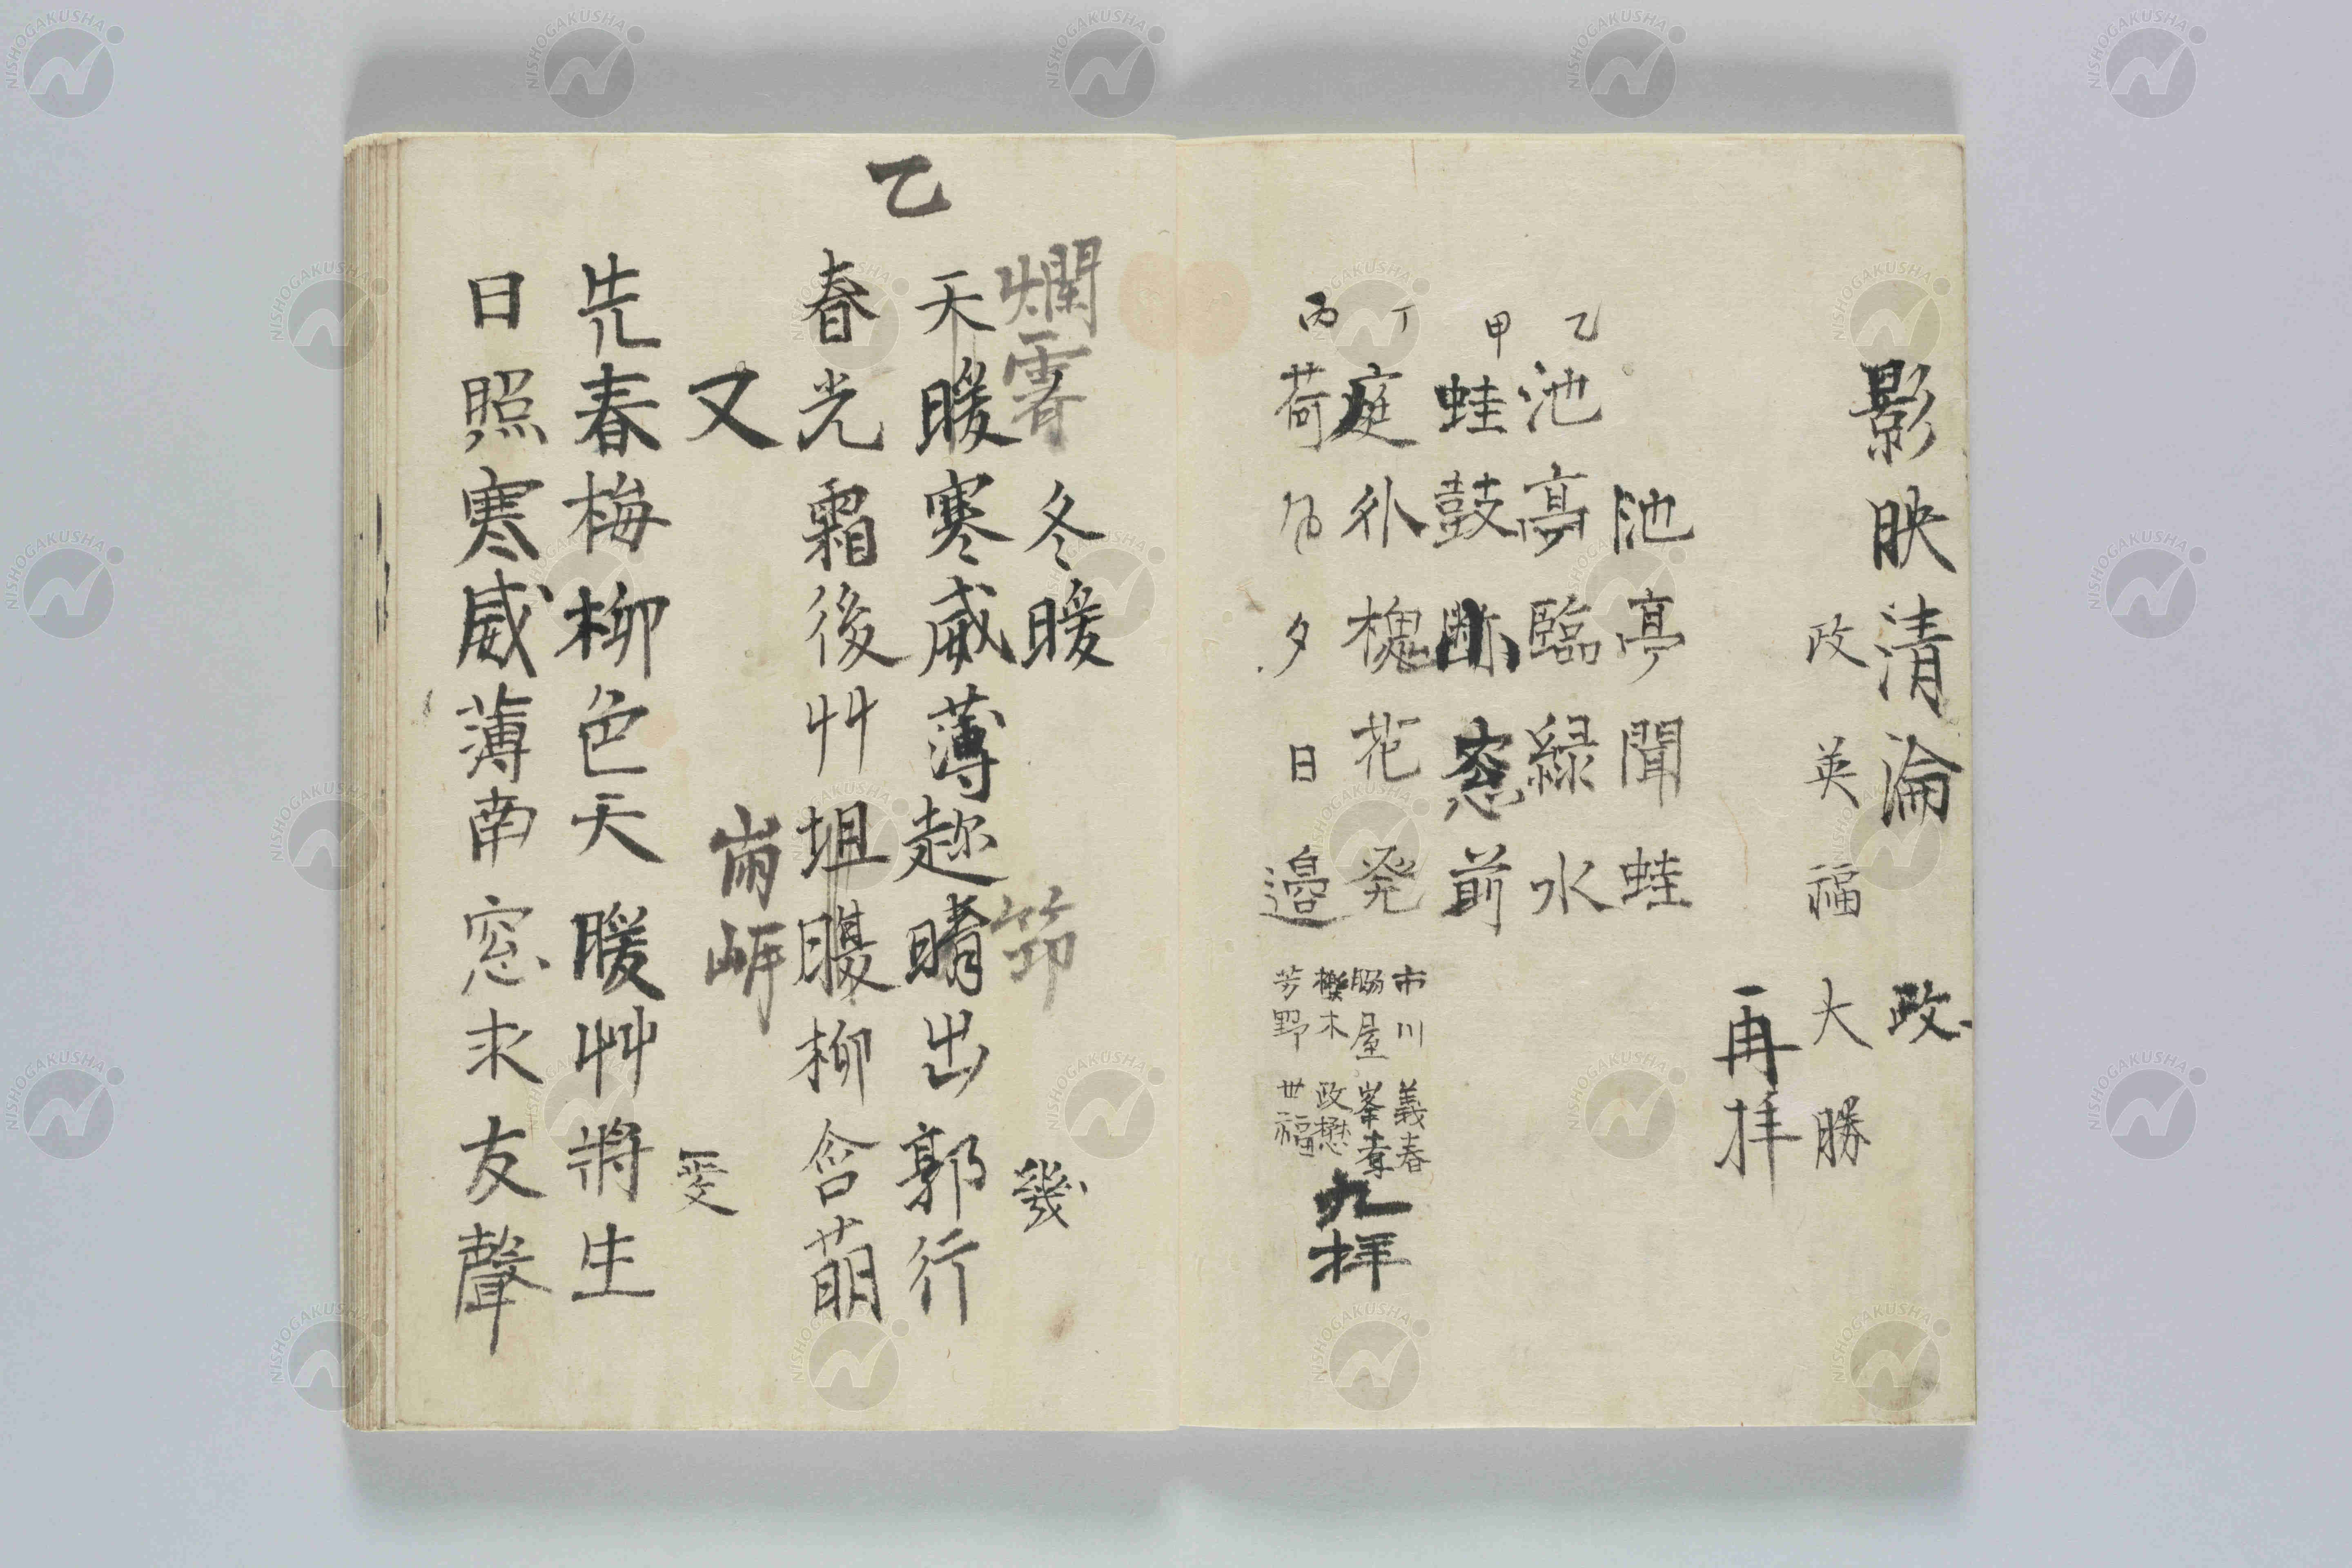 影映清淪 政
政英福大勝
再拝
池亭聞蛙
乙 池亭臨緑水
甲 蛙鼓断窓前
丁 庭外槐花発
丙 荷 夕日邉
市川 義春
脇屋
木 政懋
芳野 世福
九拝
冬暖 幾
乙
天暖寒威薄趂晴出郭行
春光霜後艸 暖柳含萌
又 愛
先春梅柳色天暖艸将生
日照寒威薄南窓求友聲